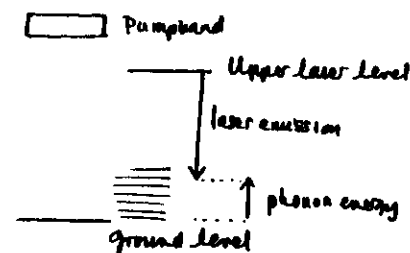 Pumpband
Upper laser level
laser emission
phonon energy
ground level